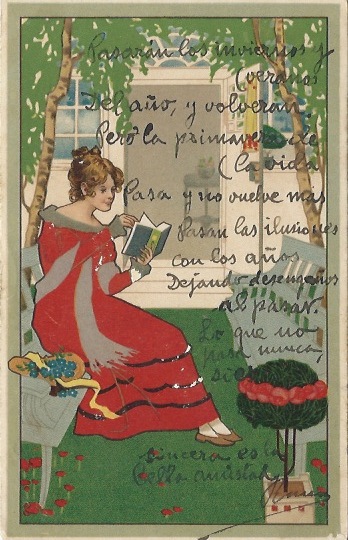 Pasarán los inviernos y
(veranos
Del año, y volverán
Pero la primavera de
(la vida
Pasa y no vuelve más
Pasan las ilusiones
con los años
Dejando desengaños
al pasar.
Lo que no
pasa nunca,
si es
sincera es la
bella amistad